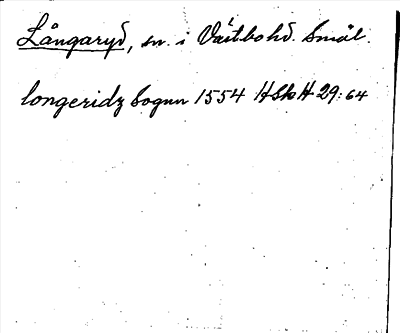 Långaryd, sn. i Västbo hd. Smål.
longeridz sognn 1554 HSH 29:64